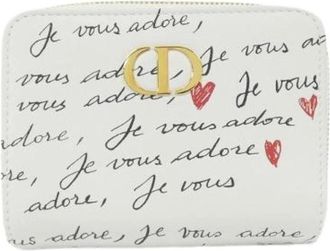 Je vous adore,
CD
vous adore, Je vous
vous adore, Je vous
adore, Je vous adore
adore, Je vous adore
adore, Je vous
vous adore, Je vous adore